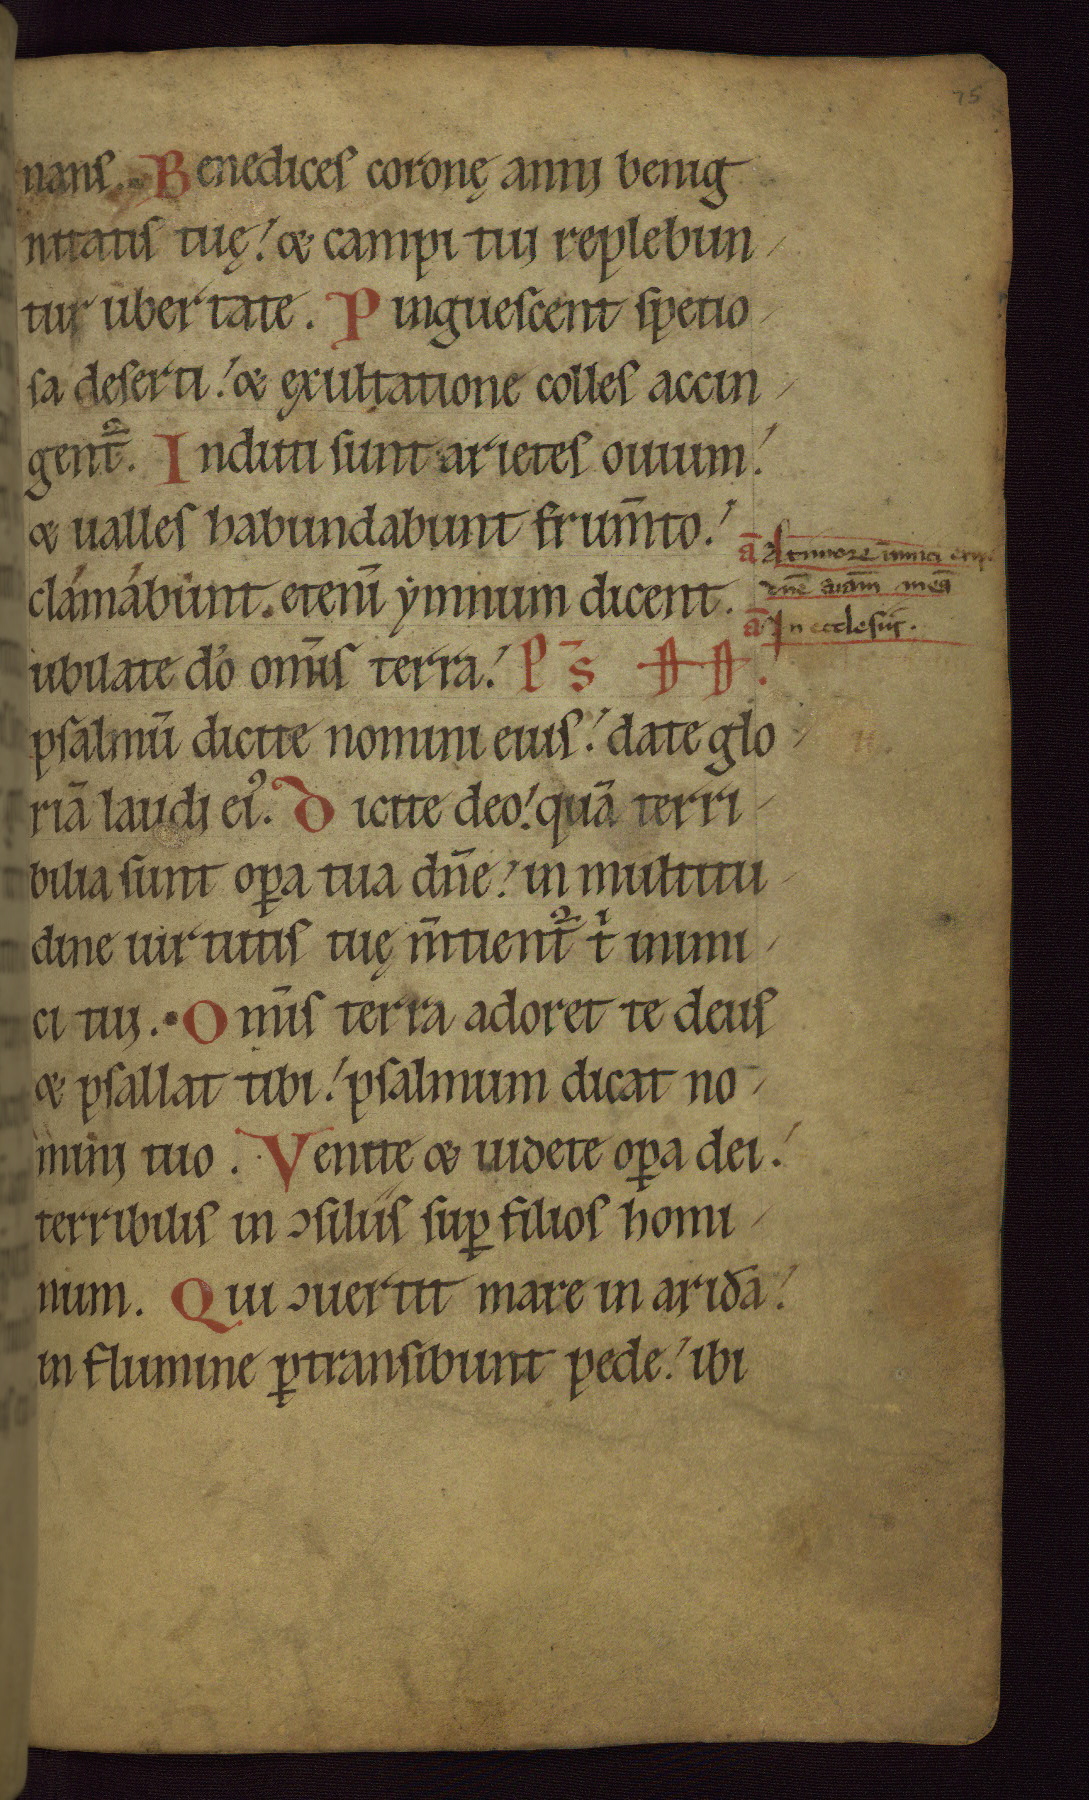 75
nans. Benedices coronę annj benig
nitatis tuę! & campi tuj replebun
tur ubertate. Pinguescent spetio
sa deserti! & exultatione colles accin
gent̄ᷣ. Induti sunt arietes ouium!
& ualles habundabunt frum̄to!
clámábunt. eteni̅ ymnum dicent.
iubilate do̅ om̅is terra! Ps̄
psalmu̅ dicite nomini eius! date glo
ria̅ laudi eiꝰ. Dicite deo! qua̅ terri
bilia sunt oꝑa tua dn̅e! in multitu
dine uirtutis tuę m̅tient̄ᷣ tⁱ inimi
ci tuj. Om̅is terra adoret te deus
& psallat tibi! psalmum dicat no
minj tuo. Venite & uidete oꝑa dei!
terribilis in ꝯsiliis suꝑ filios homi
num. Qui ꝯuertit mare in arida̅!
in flumine ꝑtransibunt pede! ibi
a̅ A timore inimici
dn̅e aīam mea̅
a̅ In ecclesiis.